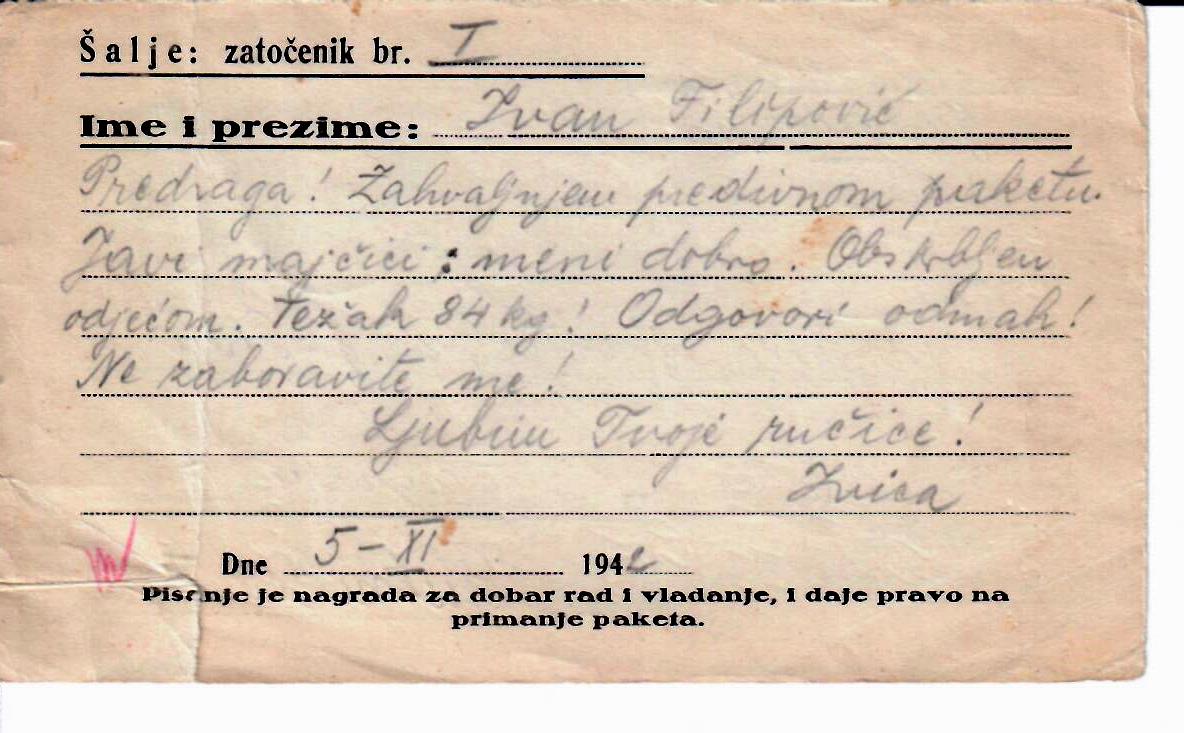 Šalje: zatočenik br. I
Ime i prezime: Ivan Filipović
Predraga! Zahvaljujem predivnom paketu.
Javi majčici: meni dobro. Obskrbljen
odjećom. Težak 84 kg! Odgovori odmah!
Ne zaboravite me!
Ljubim Tvoje ručice!
Ivica
Dne 5-XI 1942
Pisanje je nagrada za dobar rad i vladanje, i daje pravo na
primanje paketa.